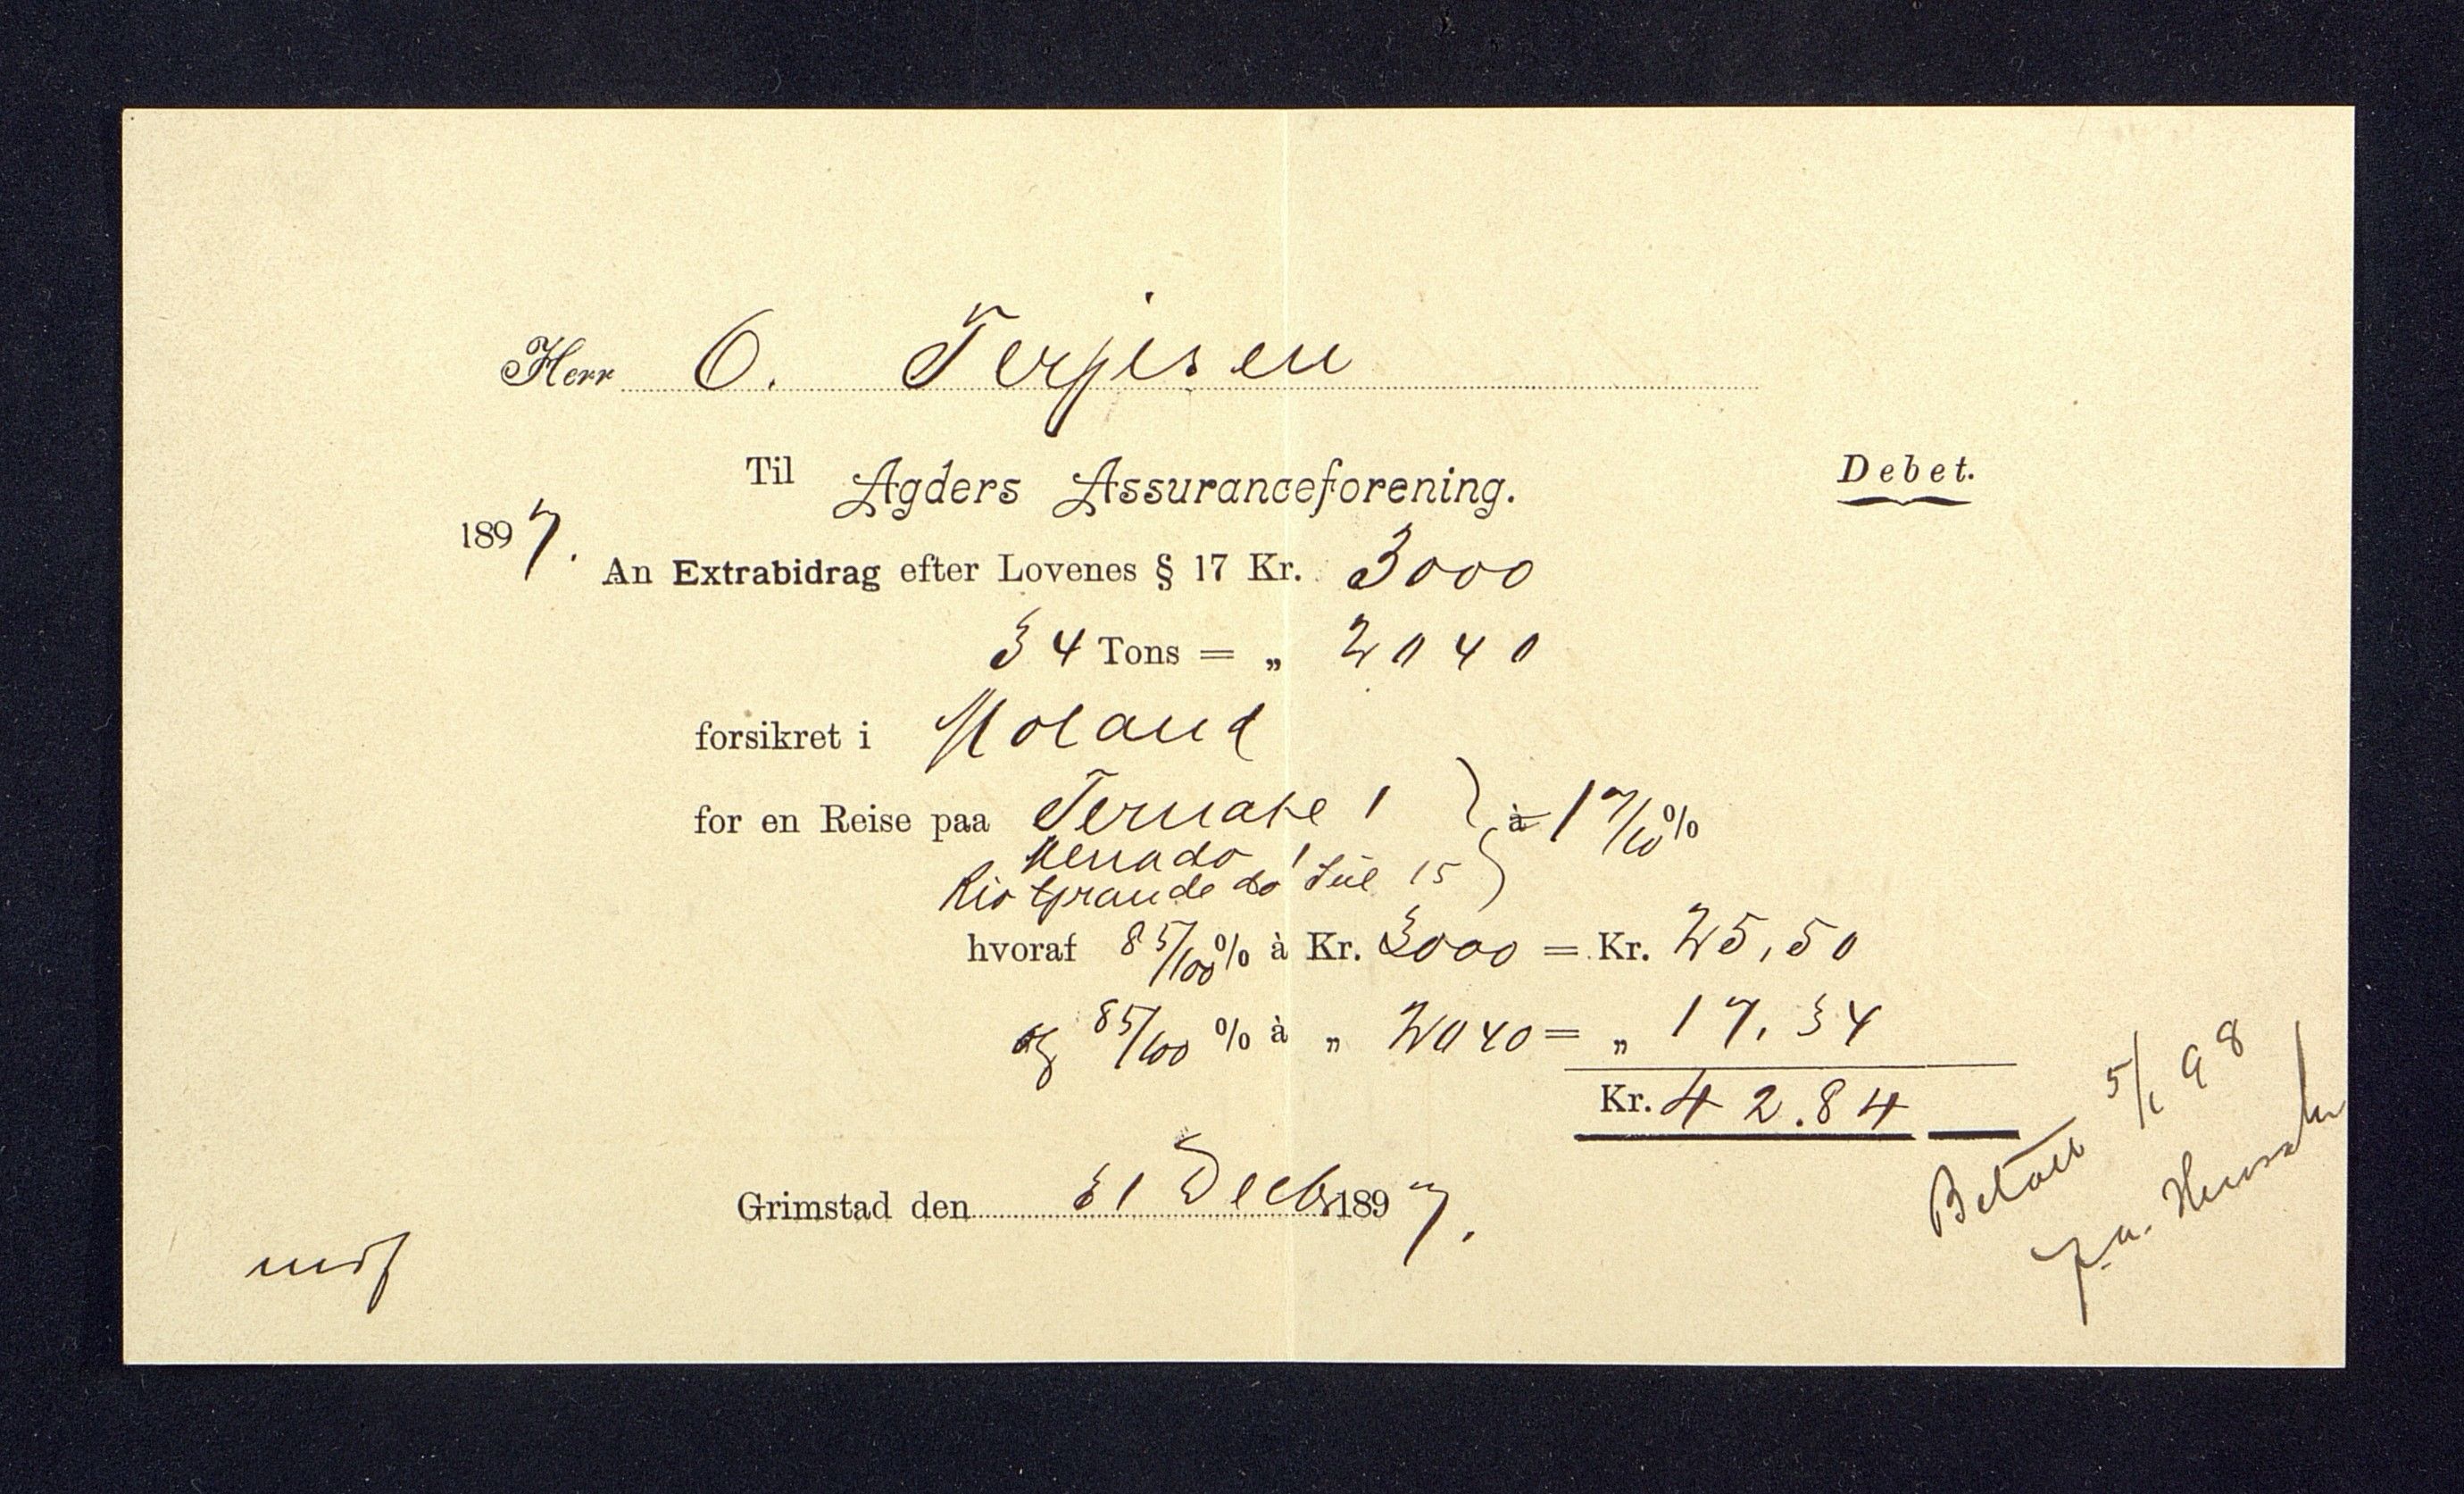 Herr O. Terjesen
Til Agders Assuranceforening. Debet.
1897.
An Extrabidrag efter Lovenes § 17 Kr. 3000
34 Tons = „ 2040
forsikret i Moland
for en Reise paa Ternate 1 } à 1 7/10 %
Menado 1
Rio Grande do Sul 15
hvoraf 85/100 % à Kr. 3000 = Kr. 25,50
og 85/100 % à „ 2040 = „ 17.34
Kr. 42.84
Grimstad den 31 Decbr 1897.
Betalt 5/1 98